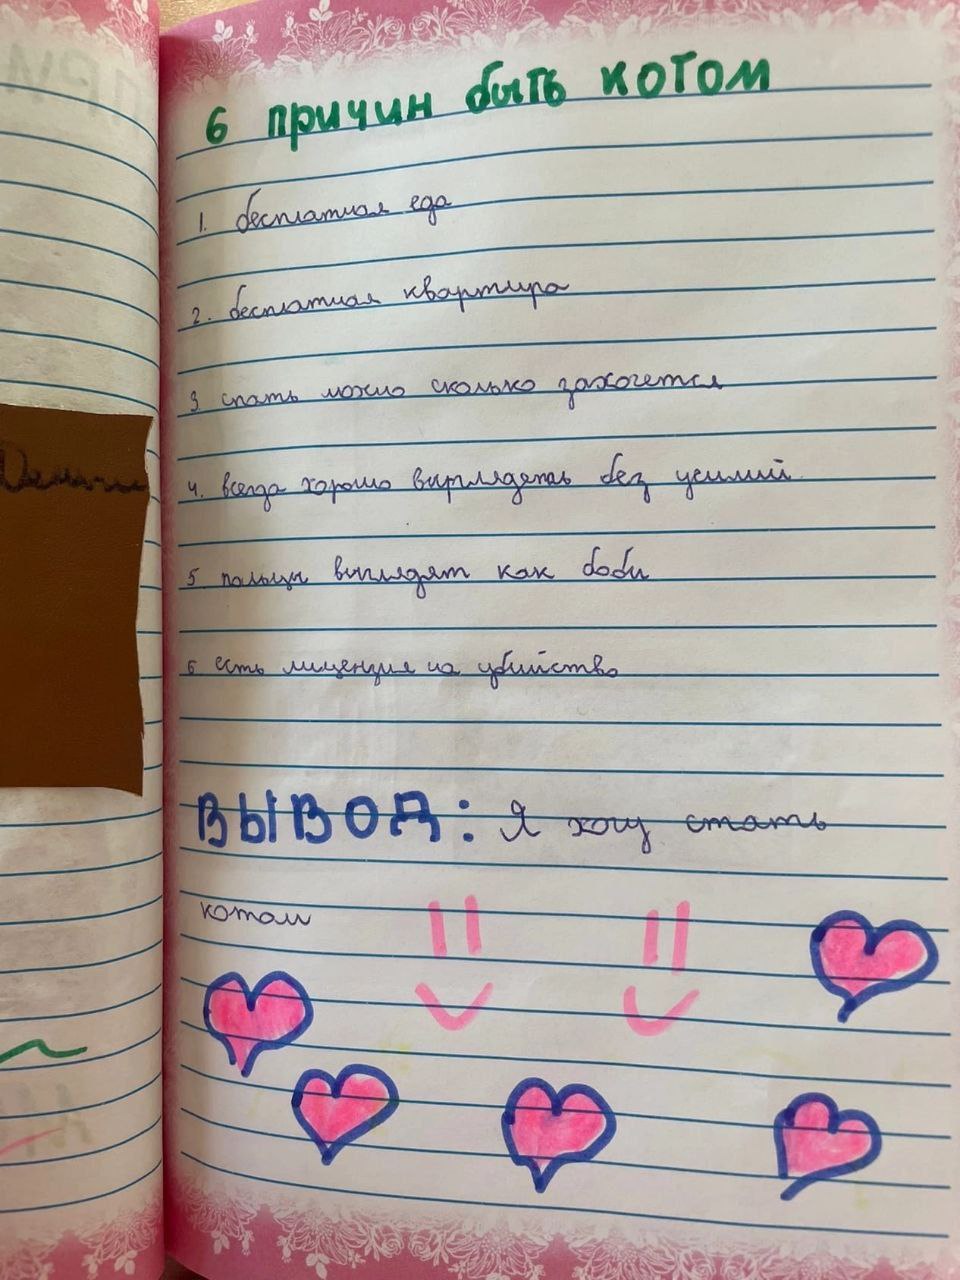 6 причин быть котом
1. бесплатная еда
2. бесплатная квартира
3 спать можно сколько захочется
4. всегда хорошо выглядеть без усилий
5 пальцы выглядят как бобы
6 есть лицензия на убийство
ВЫВОД: Я хочу стать
котом